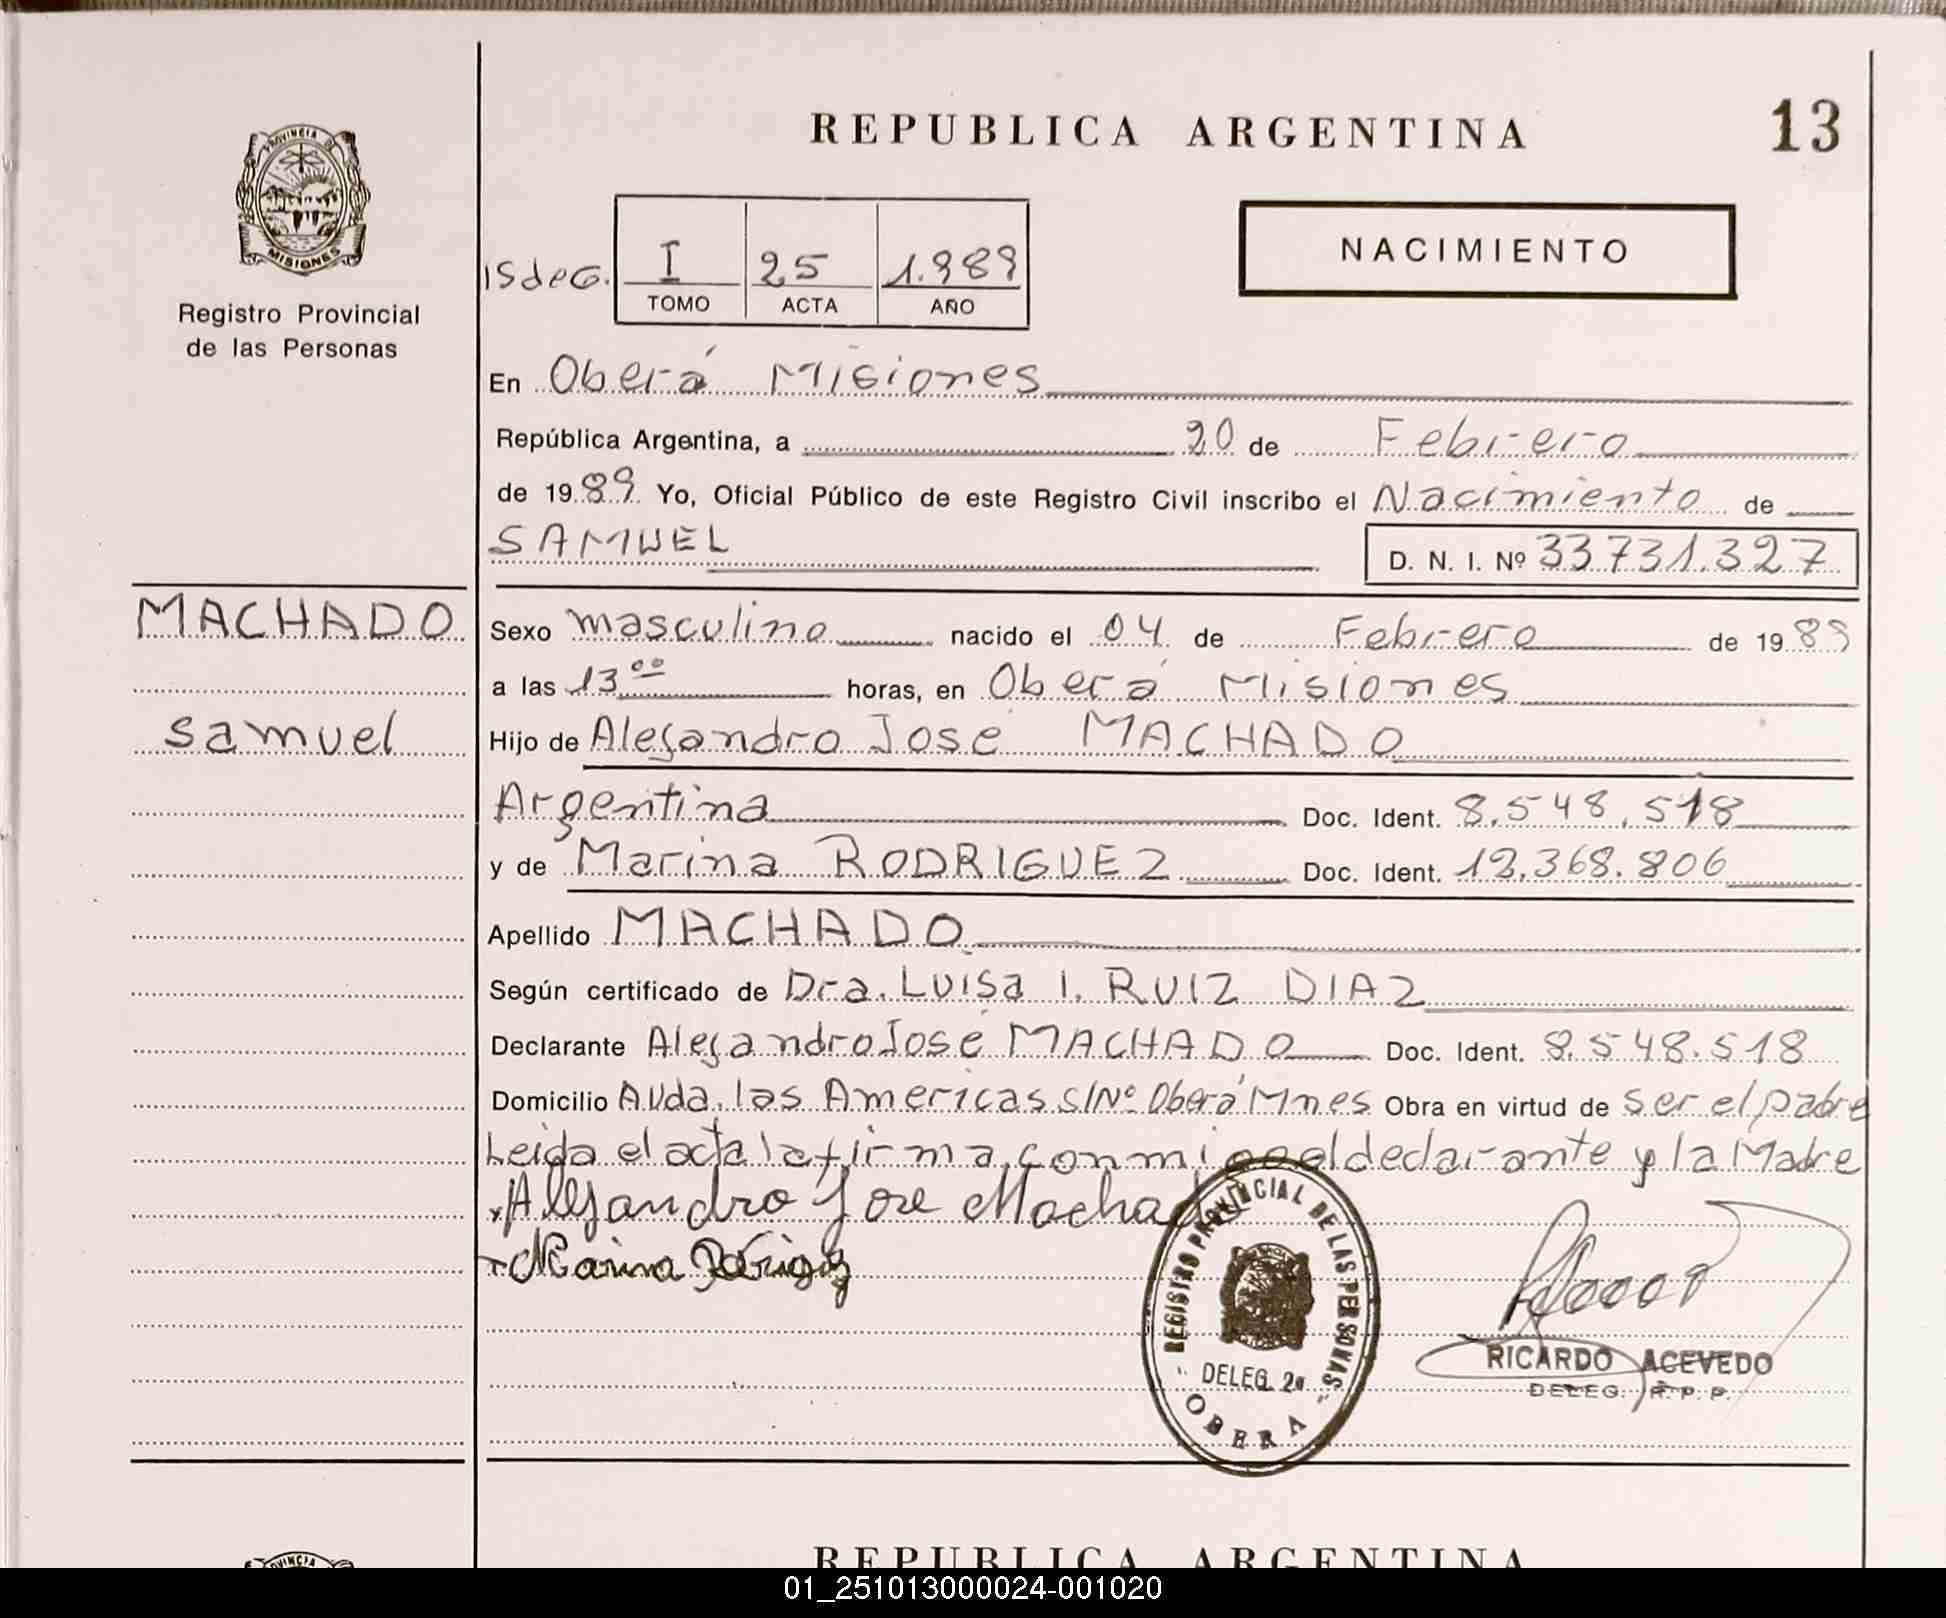 REPUBLICA ARGENTINA
13
PROVINCIA DE
MISIONES
Registro Provincial
de las Personas
ISdeG.
I
25
1.989
TOMO
ACTA
AÑO
NACIMIENTO
En Oberá Misiones
República Argentina, a 20 de Febrero
de 1989 Yo, Oficial Público de este Registro Civil inscribo el Nacimiento de
SAMUEL
D. N. I. Nº 33731.327
MACHADO
samuel
Sexo masculino nacido el 04 de Febrero de 1989
a las 13 00 horas, en Oberá Misiones
Hijo de Alejandro José MACHADO
Argentina Doc. Ident. 8.548.518
y de Marina RODRIGUEZ Doc. Ident. 12.368.806
Apellido MACHADO
Según certificado de Dra. Luisa I. RUIZ DIAZ
Declarante Alejandro José MACHADO Doc. Ident. 8.548.518
Domicilio Avda. las Americas S/Nº Oberá Mnes Obra en virtud de ser el padre
Leida el acta la firma conmigo el declarante y la Madre
x Alejandro Jose Machado
Marina
REGISTRO PROVINCIAL DE LAS PERSONAS
DELEG. 2a
OBERA
RICARDO ACEVEDO
DELEG. R. P. P.
PROVINCIA
REPUBLICA ARGENTINA
01_251013000024-001020